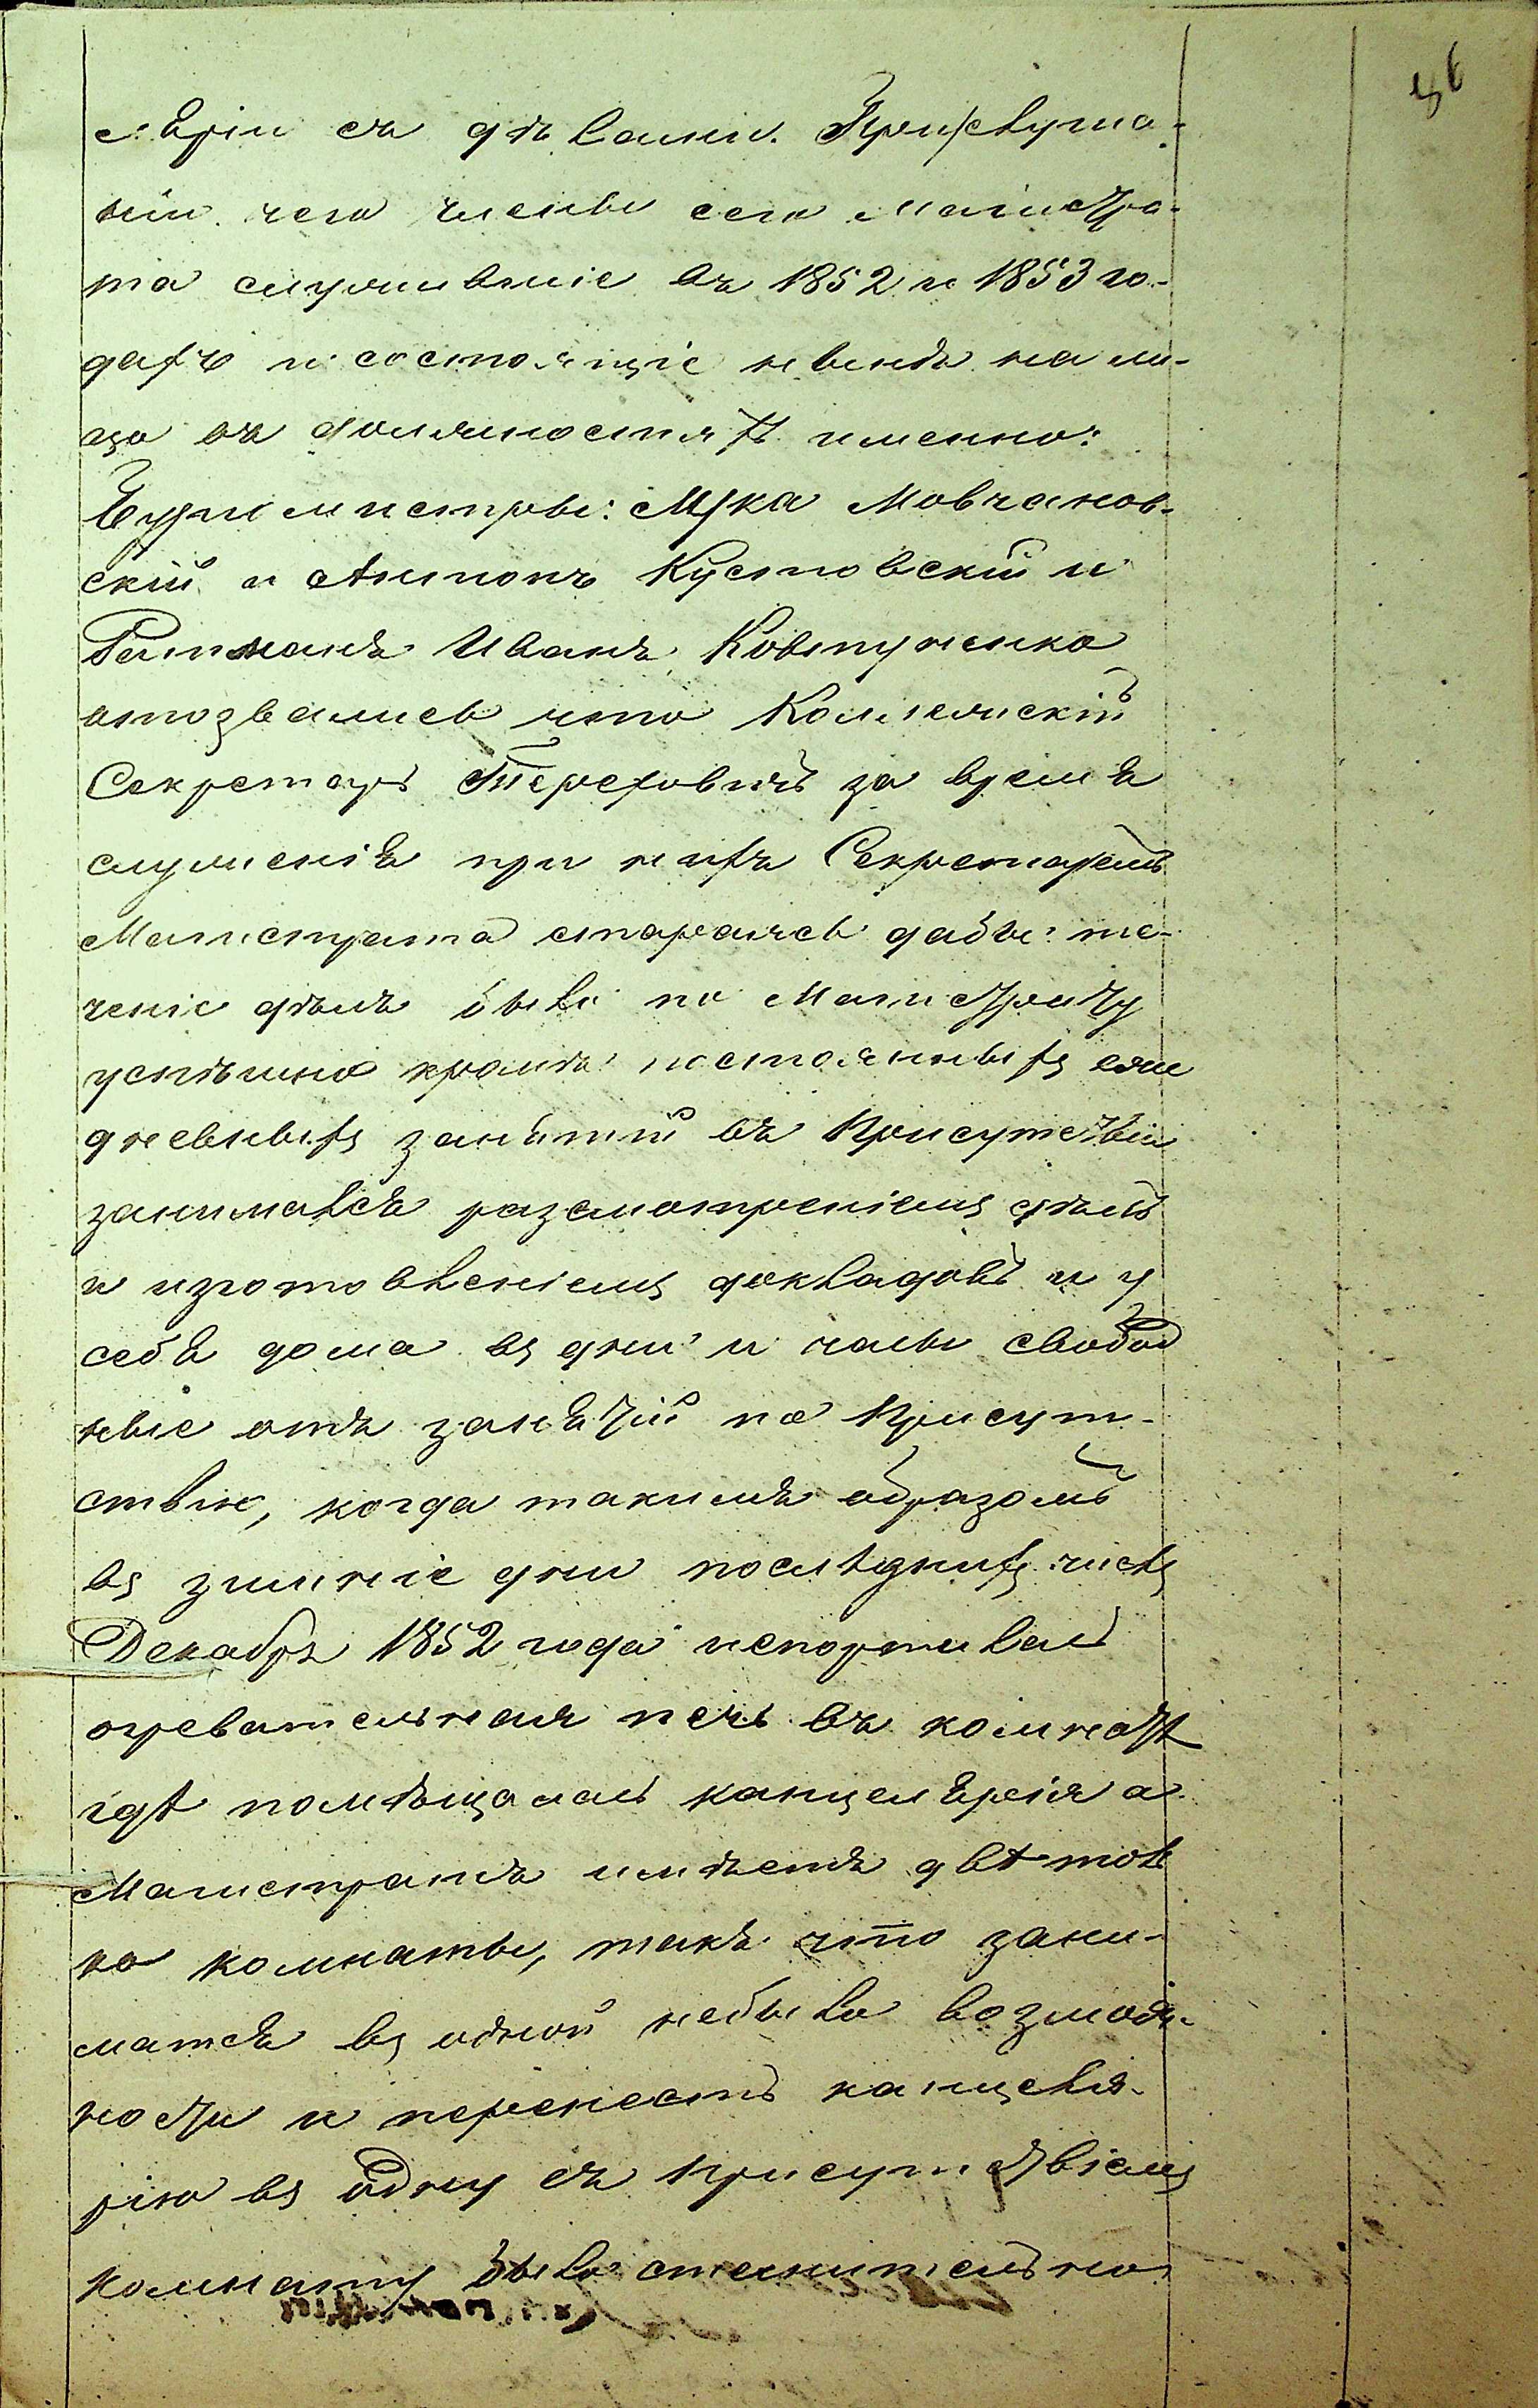 36
ляріи съ дѣлами. Прислуша-
ніи чего члены сего Магистра-
та служившіе въ 1852 и 1853 го-
дахъ и состоящіе нынѣ на ли-
цо въ должностяхъ именно:
Бургомистры: Лука Мовчанов-
скій и Антонъ Кустовскій и
Ратманъ Иванъ Ковтуненко
отозвались что Коллежскій
Секретарь Тереховичъ за время
служенія при нихъ Секретаремъ
Магистрата стараясь дабы те-
ченіе дѣлъ было по Магистрату
успѣшно кромѣ постоянныхъ еже
дневныхъ занятій въ Присутствіи
занимался разсмотреніемъ дѣлъ
и изготовленіемъ докладовъ и у
себя дома въ дни и часы свобод
ные отъ занятій по Присут-
ствію, когда такимъ образомъ
въ зимніе дни последнихъ числъ
Декабря 1852 года испортилась
огревательная печь въ комнатѣ
гдѣ помѣщалась канцелярія а
Магистратъ имѣетъ двѣ толь
ко комнаты, такъ что зани-
матся въ одной небыло возмож-
ности и перенесть канцеля-
рію въ одну съ Присутствіемъ
комнату было стеснительно